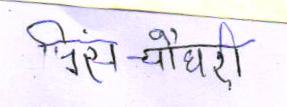 प्रिंस चौधरी